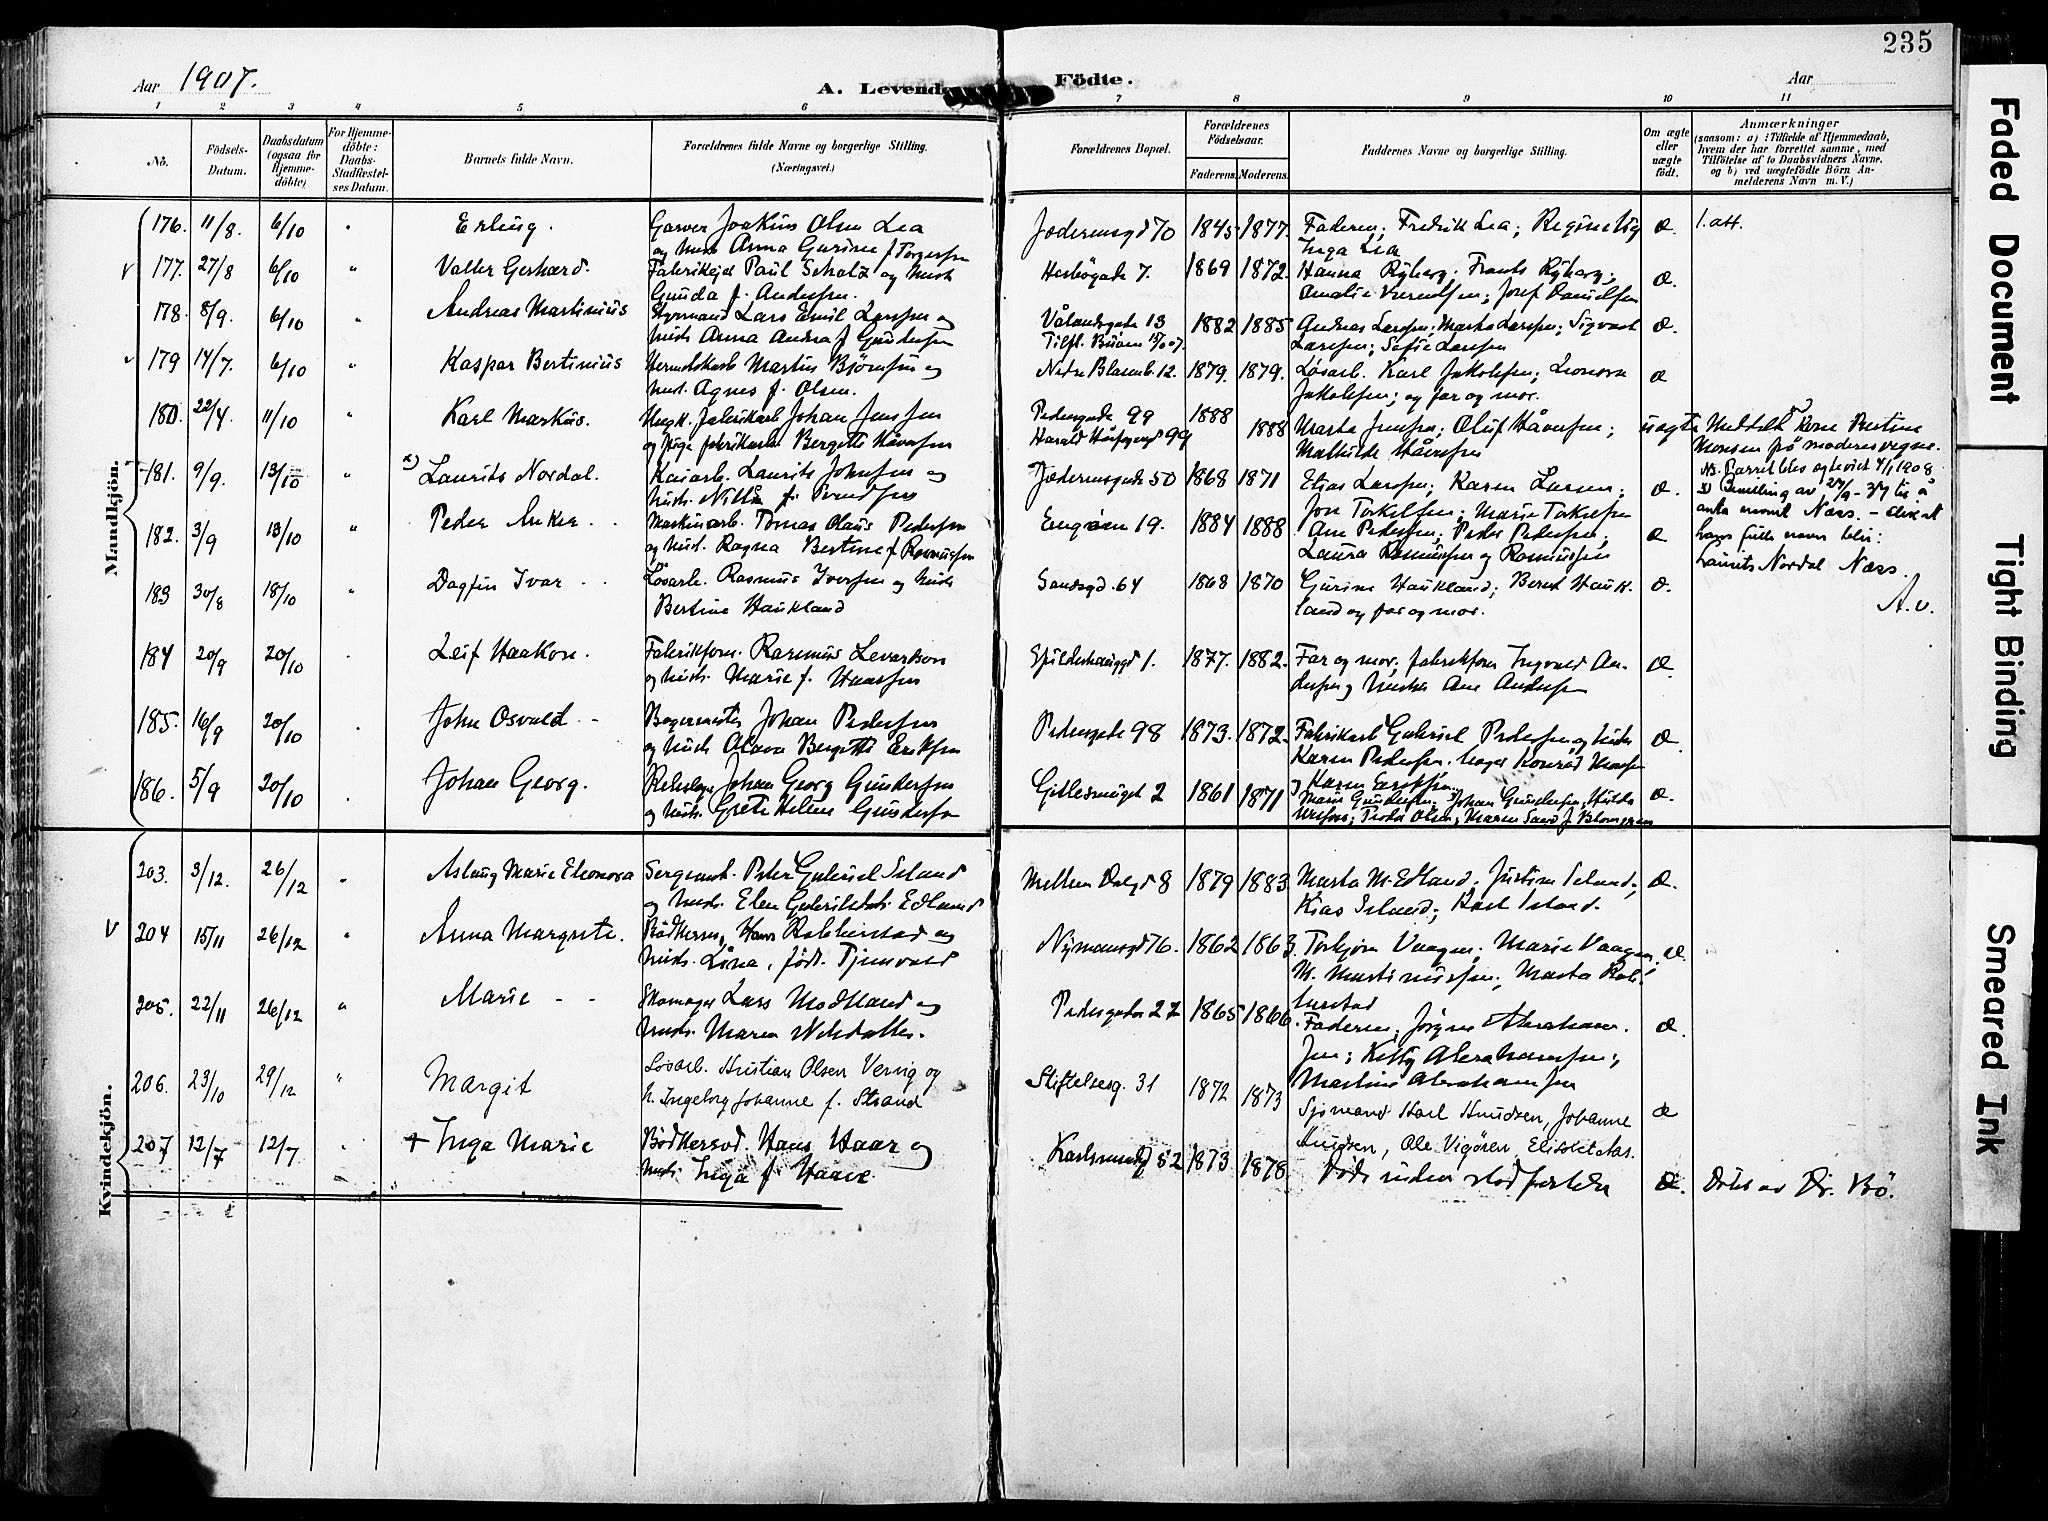 235
Aar 1907.
A. Levende Födte.
Aar
1 2 3 4 5 6 7 8 9 10 11
No.
Födsels-Datum.
Daabsdatum (ogsaa for Hjemme-döbte)
For Hjemme-döbte: Daabs-Stadfæstel-ses Datum.
Barnets fulde Navn.
Forældrenes fulde Navne og borgerlige Stilling.
(Næringsvei.)
Forældrenes Bopæl.
Forældrenes Födselsaar.
Faderens. Moderens.
Faddernes Navne og borgerlige Stilling.
Om ægte eller uægte födt.
Anmærkninger
(saasom: a) i Tilfælde af Hjemmedaab,
hvem der har forrettet samme, med
Tilföielse af to Daabsvidners Navne,
og b) ved uægtefödte Börn An-
melderens Navn m. V.)
Mandkjön.
176. 11/8. 6/10 " Erling. Garver Joakim Olsen Lea
og hust. Anna Gurine f. Torgersen
Jæderensgd 70 1845 1877. Faderen; Fredrik Lea;
Inga Lea
æ. 1. att.
V 177. 27/8 6/10 " Valter Gerhard. Fabrikejer Paul Scholz og hust.
Gunda f. Andersen.
7. 1869 1872. Hanna Ryberg; Frants Ryberg;
Amalie; Josef Danielsen
æ.
178. 8/9. 6/10 " Andreas Martinius Styrmand Lars Emil Larsen og
hust. Anna Andrea f. Gundersen
Vålandsgade 13 1882 1885 Andreas Larsen; Marta Larsen; Sigvart
Larsen; Sofie Larsen
æ.
v 179 14/7. 6/10 " Kaspar Bertinius Hermetikarb. Martin Bjørnsen og
hust. Agnes f. Olsen.
Nedre Blaasenb. 12. 1879. 1879. Løsarb. Karl Jakobsen; Leonora
Jakobsen; og far og mor.
æ
180. 22/4. 11/10 " Karl Markus. Ungk. fabrikarb. Johan Jensen
og pige fabrikarb. Bergitte Håvesen
Pedersgade 99
99
1888 1888 Marta Jensen; Oluf Håvesen;
Mathilde Håvesen
uægte Meddelt kone Bertine
Monsen på moderens vegne.
181. 9/9. 13/10 " x) Laurits Nordal. Kaiarb. Laurits Johnsen og
hust.
Jæderensgade 50 1868 1871 Elias Larsen; Karen Larsen;
Jon Torkelsen; Marie Torkelsen
æ. 4/1 1908
x) Bevilling av til å
anta navnet Næss. –
hans fulle navn blir:
Laurits Nordal Næss.
A.v.
182. 3/9 13/10 " Peder Anker. Maskinarb. Tomas Olaus Pedersen
og hust. Ragna Bertine f. Rasmussen
Engøen 19. 1884 1888 Ane Pedersen; Peder Pedersen;
Laura Rasmussen og Rasmussen
æ
183 30/8 18/10 Dagfin Ivar Løsarb. Rasmus Iversen og hust.
Bertine Haukland
Sandsgd. 64 1868 1870 Gurine Haukland; Bernt Hauk-
land og far og mor.
æ.
184 20/9 20/10 Leif Haakon. Fabrikform. Rasmus Levardson
og hust. Marie f. Hansen
1. 1877. 1882. Far og mor; fabrikform Ingvald An-
dersen og hustru Ane Andersen
æ.
185. 16/9 20/10 John Osvald Bagermester Johan Pedersen
og hust. Olava Bergitte Eriksen
Pedersgade 98 1873. 1872. Fabrikarb. Gabriel Pedersen og hustru
Karen Pedersen. Konrad Hansen
Karen Eriksen.
æ.
186. 5/9 20/10 Johan Georg. Johan Georg Gundersen
og hust. Grete Helene Gundersen
Gilesmuget 2 1861 1871 Marie Gundersen; Johan Gundersen; Hulda
Teodor Olsen; Maren Sand f. Blomgren
æ.
Kvindekjön.
203. 3/12. 26/12 " Aslaug Marie Eleonora Sergeant. Peter Gabriel Iseland
og hust. Elen Edland
Mellem Dalgd 8 1879 1883 Marta M. Edland; Justine Iseland;
Kias Iseland; Karl Iseland.
æ.
V 204 15/11 26/12 " Anna Margrete. Bødkersv. Hans Robberstad og
hust. Lina, født Tjensvold
Nymansgd 76. 1862 1863. Torbjørn Vaagen; Marie Vaagen;
M. Martinussen; Marta Rob-
berstad
æ.
205. 22/11 26/12 " Marie Skomager Lars Modland og
hust. Maren
Pedersgaden 27 1865 1866. Faderen; Jørgen Abraham-
sen; Kitty Abrahamsen;
Martine Abrahamsen
æ.
206. 23/10 29/12 " Margit Løsarb. Kristian Olsen Vervig og
h. Ingeborg Johanne f. Strand
Stiftelsesg. 31 1872 1873 Sjømand Karl Knudsen, Johanne
Knudsen, Ole Vigøren,
æ
207 12/7 12/7 + Inga Marie Bødkersvd. Hans Haar og
hust. Inga f. Haare.
52 1873 1878 Døde uden stadfæstelse
æ. Døbt av Dr. Bö.
Faded Document
Tight Binding
Smeared Ink